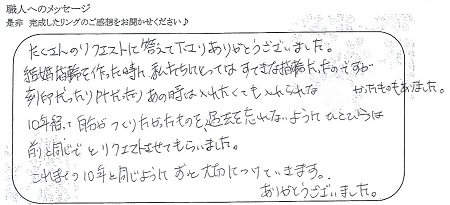 職人へのメッセージ
是非 完成したリングのご感想をお聞かせください♪
たくさんのリクエストに答えて下さりありがとうございました。
結婚指輪を作った時に私たちにとってはすてきな指輪だったのですが
刻印だったり あの時は入れたくても入れられなかったものもありました。
10年経って自分がつくりたかったものを、過去を忘れないように ひとつは
前と同じで とリクエストさせてもらいました。
これまでの10年と同じように ずっと大切につけていきます。
ありがとうございました。